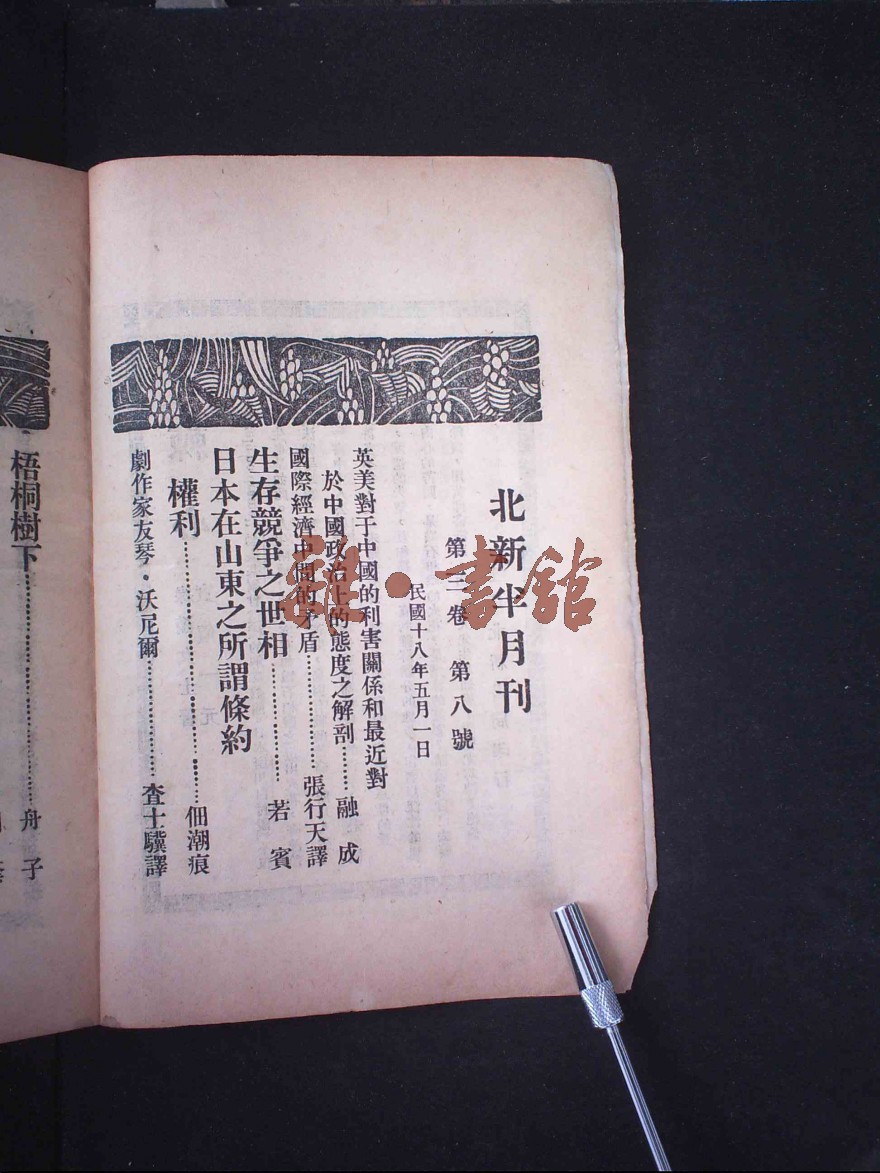 北新半月刊
第三卷 第八號
民國十八年五月一日
英美對于中國的利害關係和最近對
於中國政治上的態度之解剖……融成
國際經濟中間的矛盾……張行天譯
生存競爭之世相……若賓
日本在山東之所謂條約
權利……佃潮痕
劇作家友琴·沃尼爾……查士驥譯
梧桐樹下……舟子
雜·書館